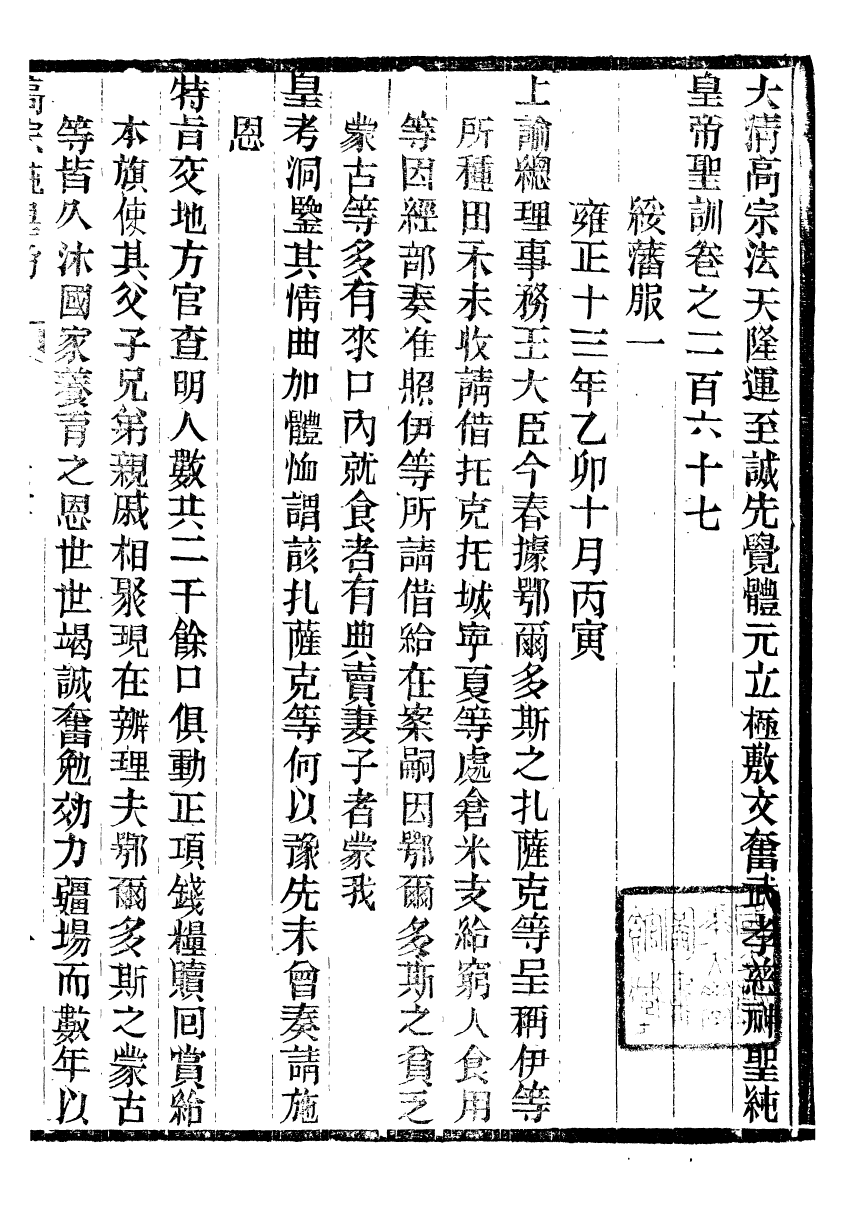 大清高宗法天隆運至誠先覺體元立極敷文奮武孝慈神聖純
皇帝聖訓卷之二百六十七
綏藩服一
雍正十三年乙卯十月丙寅
上諭總理事務王大臣今春據鄂爾多斯之扎薩克等呈稱伊等
所種田禾未收請借托克托城寧夏等處倉米支給窮人食用
等因經部奏准照伊等所請借給在案嗣因鄂爾多斯之貧乏
蒙古等多有來口內就食者有典賣妻子者蒙我
皇考洞鑒其情曲加體恤謂該扎薩克等何以豫先未曾奏請施
恩
特旨交地方官查明人數共二千餘口俱動正項錢糧贖回賞給
本旗使其父子兄弟親戚相聚現在辨理夫鄂爾多斯之蒙古
等皆久沐國家養育之恩世世竭誠奮勉効力疆場而數年以